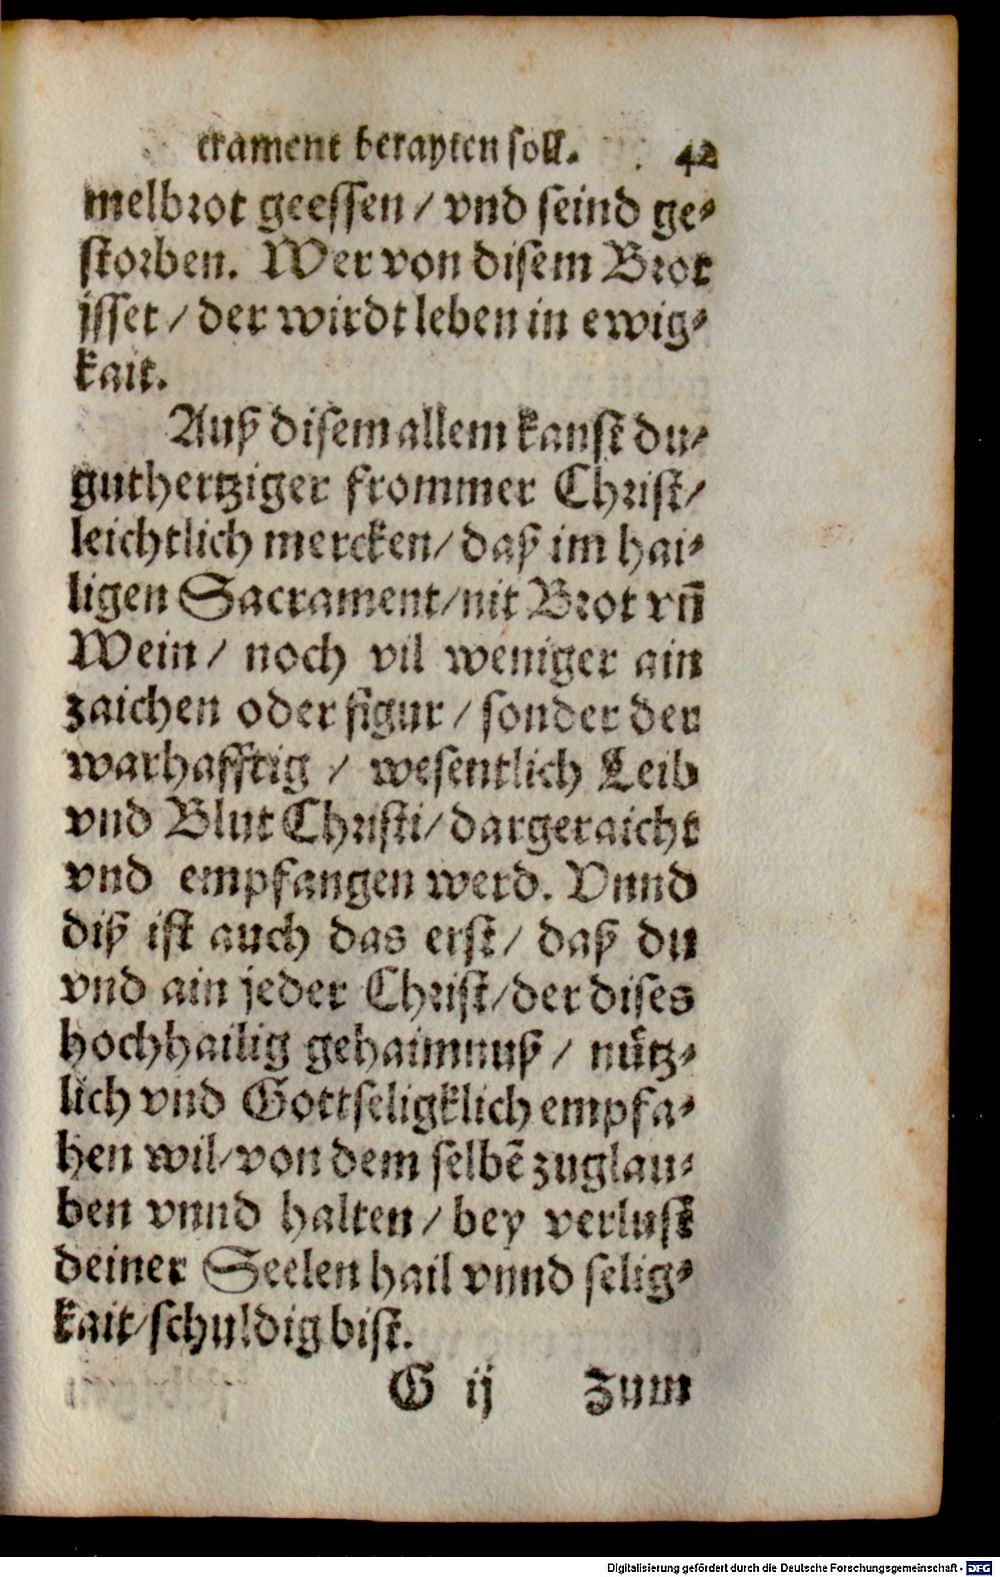 crament berayten soll. 42
melbrot geessen / vnd seind ge⸗
storben. Wer von disem Brot
jsset / der wirdt leben in ewig⸗
kait.
Auß disem allem kanst du⸗
guthertziger frommer Christ /
leichtlich mercken / daß im hai⸗
ligen Sacrament / nit Brot vñ
Wein / noch vil weniger ain
zaichen oder figur / sonder der
warhafftig / wesentlich Leib
vnd Blut Christi / dargeraicht
vnd empfangen werd. Vnnd
diß ist auch das erst / daß du
vnd ain jeder Christ / der dises
hochhailig gehaimnuß / nůtz⸗
lich vnd Gottseligklich empfa⸗
hen wil / von dem selbẽ zuglau⸗
ben vnnd halten / bey verlust
deiner Seelen hail vnnd selig⸗
kait / schuldig bist.
G ij zum
Digitalisierung gefördert durch die Deutsche Forschungsgemeinschaft - DFG